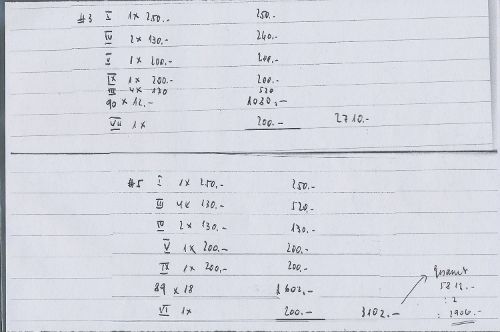 #3 I 1 x 250.- 250.-
IV 2 x 130.- 260.-
V 1 x 200.- 200.-
IX 1 x 200.- 200.-
III 4 x 130 520
90 x 12.- 1080.-
VII 1 x 200.- 2710.-
#5 I 1 x 250.- 250.-
III 4 x 130.- 520.-
IV 2 x 130.- 130.-
V 1 x 200.- 200.-
IX 1 x 200.- 200.-
89 x 18 1602.-
VI 1x 200.- 3102.-
Gesamt
5812.-
: 2
: 2906.-